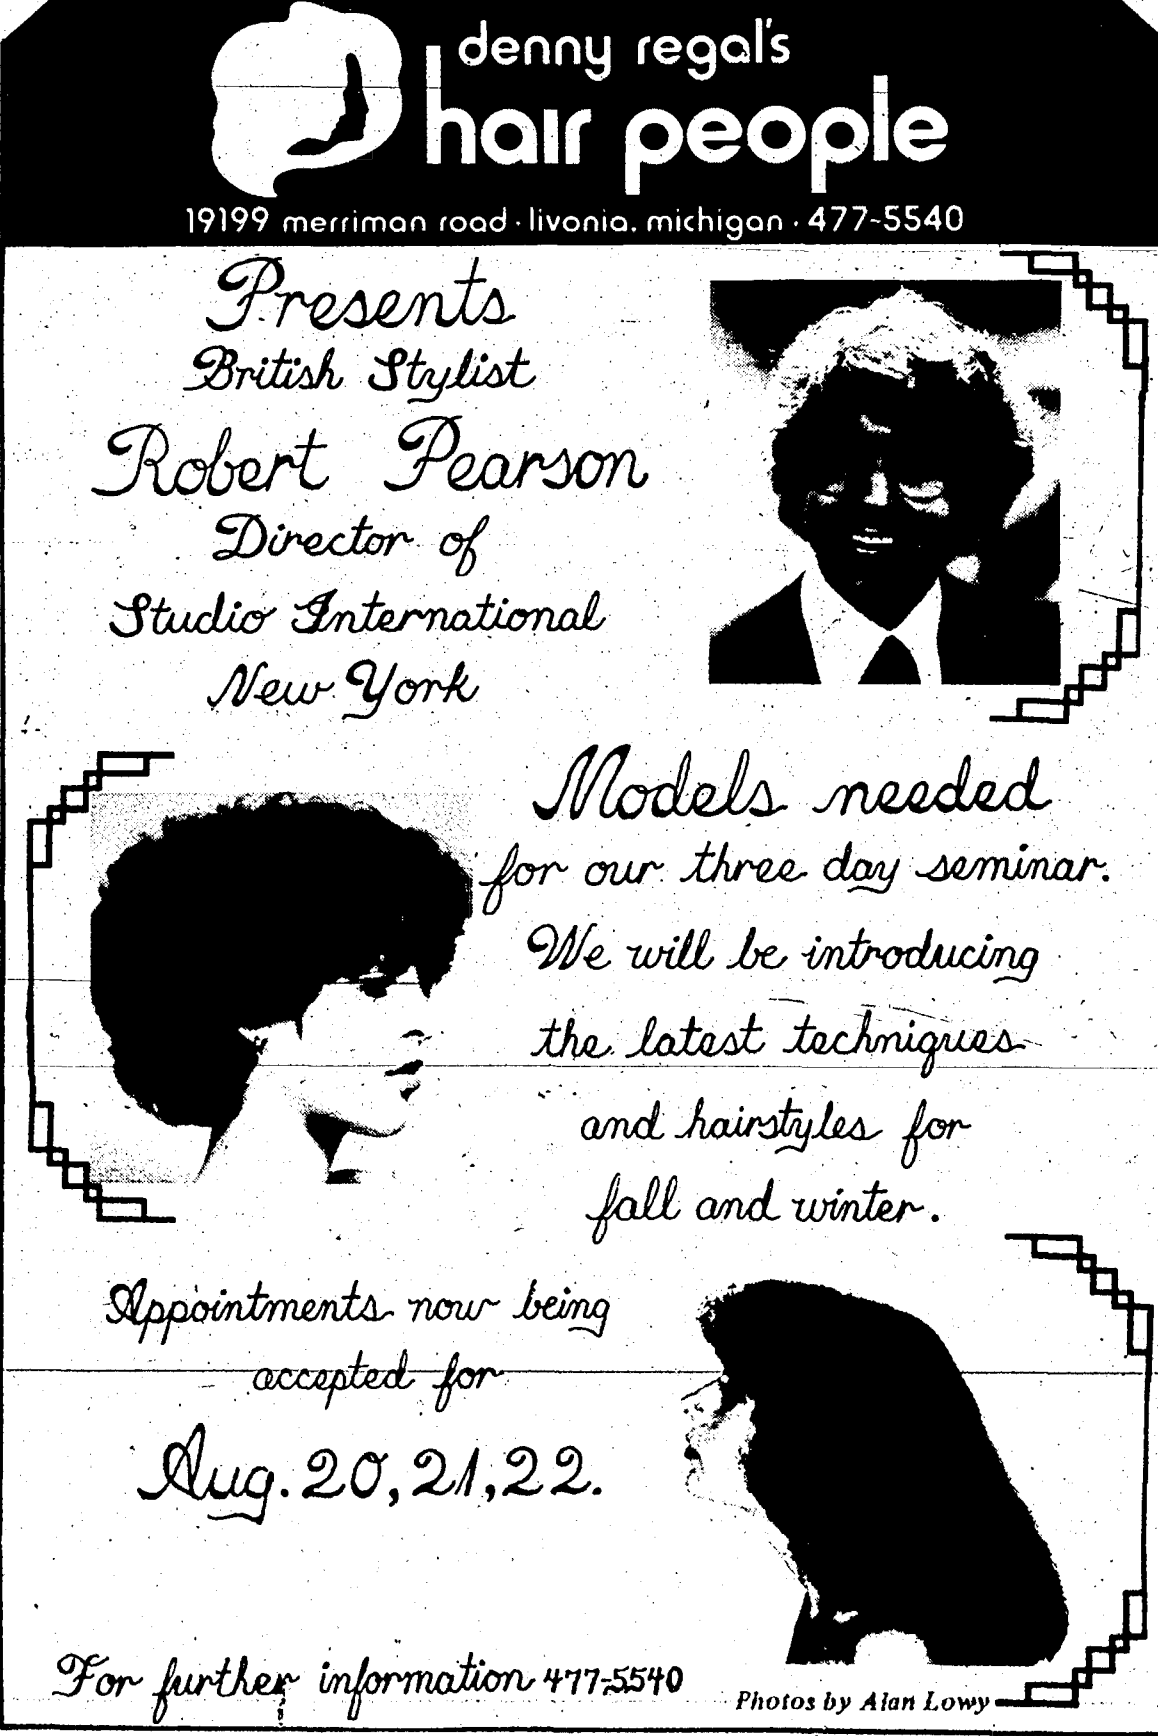 denny regal's
hair people
19199 merriman road · livonia, michigan · 477-5540
Presents
British Stylist
Robert Pearson
Director of
Studio International
New York
Models needed
for our three day seminar.
We will be introducing
the latest techniques
and hairstyles for
fall and winter.
Appointments now being
accepted for
Aug. 20, 21, 22.
For further information 477-5540
Photos by Alan Lowy